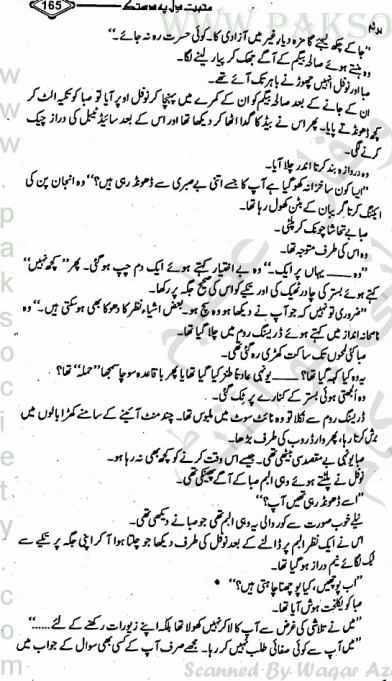 165
محبت دل پہ دستک
WWW.PAKSO
”جا کے چکھ لیجئے گا مزہ دیارِ غیر میں آزادی کا۔ کوئی حسرت رہ نہ جائے۔“
وہ ہنستے ہوئے صالحہ بیگم کے آگے جھک کر پیار لینے لگا۔
صبا اور نوفل انہیں چھوڑنے باہر تک آئے تھے۔
ان کے جانے کے بعد صالحہ بیگم کو ان کے کمرے میں پہنچا کر نوفل اوپر آیا تو صبا کو تکیہ الٹ کر
کچھ ڈھونڈتے پایا۔ پھر اس نے بیڈ کا گدا اٹھا کر دیکھا تھا اور اس کے بعد سائیڈ ٹیبل کی دراز چیک
کرنے لگی۔
وہ دروازہ بند کرتا اندر چلا آیا۔
”ایسا کون سا خزانہ کھو گیا ہے آپ کا جسے اتنی بے صبری سے ڈھونڈ رہی ہیں؟“ وہ انجان پن کی
ایکٹنگ کرتا گریبان کے بٹن کھول رہا تھا۔
صبا بے تحاشا چونک کر پلٹی۔
وہ اس کی طرف متوجہ تھا۔
”وہ ____ یہاں پر ایک۔“ وہ بے اختیار کہتے ہوئے ایک دم چپ ہو گئی۔ پھر ”کچھ نہیں“
کہتے ہوئے بستر کی چادر ٹھیک کی اور تکیے کو اس کی صحیح جگہ پر رکھا۔
”ضروری تو نہیں کہ جو آپ نے دیکھا ہو وہ سچ ہو۔ بعض اشیاء نظر کا دھوکا بھی ہو سکتی ہیں۔“ وہ
ناصحانہ انداز میں کہتے ہوئے ڈریسنگ روم میں چلا گیا تھا۔
صبا کئی لمحوں تک ساکت کھڑی رہ گئی تھی۔
یہ وہ کیا کہہ گیا تھا؟ ____ یونہی عادتاً طنز کیا گیا تھا یا پھر باقاعدہ سوچا سمجھا ”حملہ“ تھا؟
وہ الجھتی ہوئی بستر کے کنارے پر ٹک گئی۔
ڈریسنگ روم سے نکلا تو وہ نائٹ سوٹ میں ملبوس تھا۔ چند منٹ آئینے کے سامنے کھڑا بالوں میں
برش کرتا رہا، پھر وارڈ روب کی طرف بڑھا۔
صبا یونہی بے مقصد سی بیٹھی تھی۔ جیسے اس وقت کرنے کو کچھ بھی نہ رہا ہو۔
نوفل نے پلٹتے ہوئے وہی البم صبا کے آگے پھینکی تھی۔
”اسے ڈھونڈ رہی تھیں آپ؟“
نیلے خوب صورت سے کور والی یہ وہی البم تھی جو صبا نے دیکھی تھی۔
اس نے ایک نظر البم پر ڈالنے کے بعد نوفل کی طرف دیکھا جو چلتا ہوا آ کر اپنی جگہ پر تکیے سے
ٹیک لگائے نیم دراز ہو گیا تھا۔
”اب پوچھیں، کیا پوچھنا چاہتی ہیں؟“
صبا کو یکلخت ہوش آیا تھا۔
”میں نے تلاشی کی غرض سے آپ کا لاکر نہیں کھولا تھا بلکہ اپنے زیورات رکھنے کے لئے.....“
”میں آپ سے کوئی صفائی طلب نہیں کر رہا۔ مجھے صرف آپ کے کسی بھی سوال کے جواب میں
www.paksociety.com
Scanned By Waqar Az